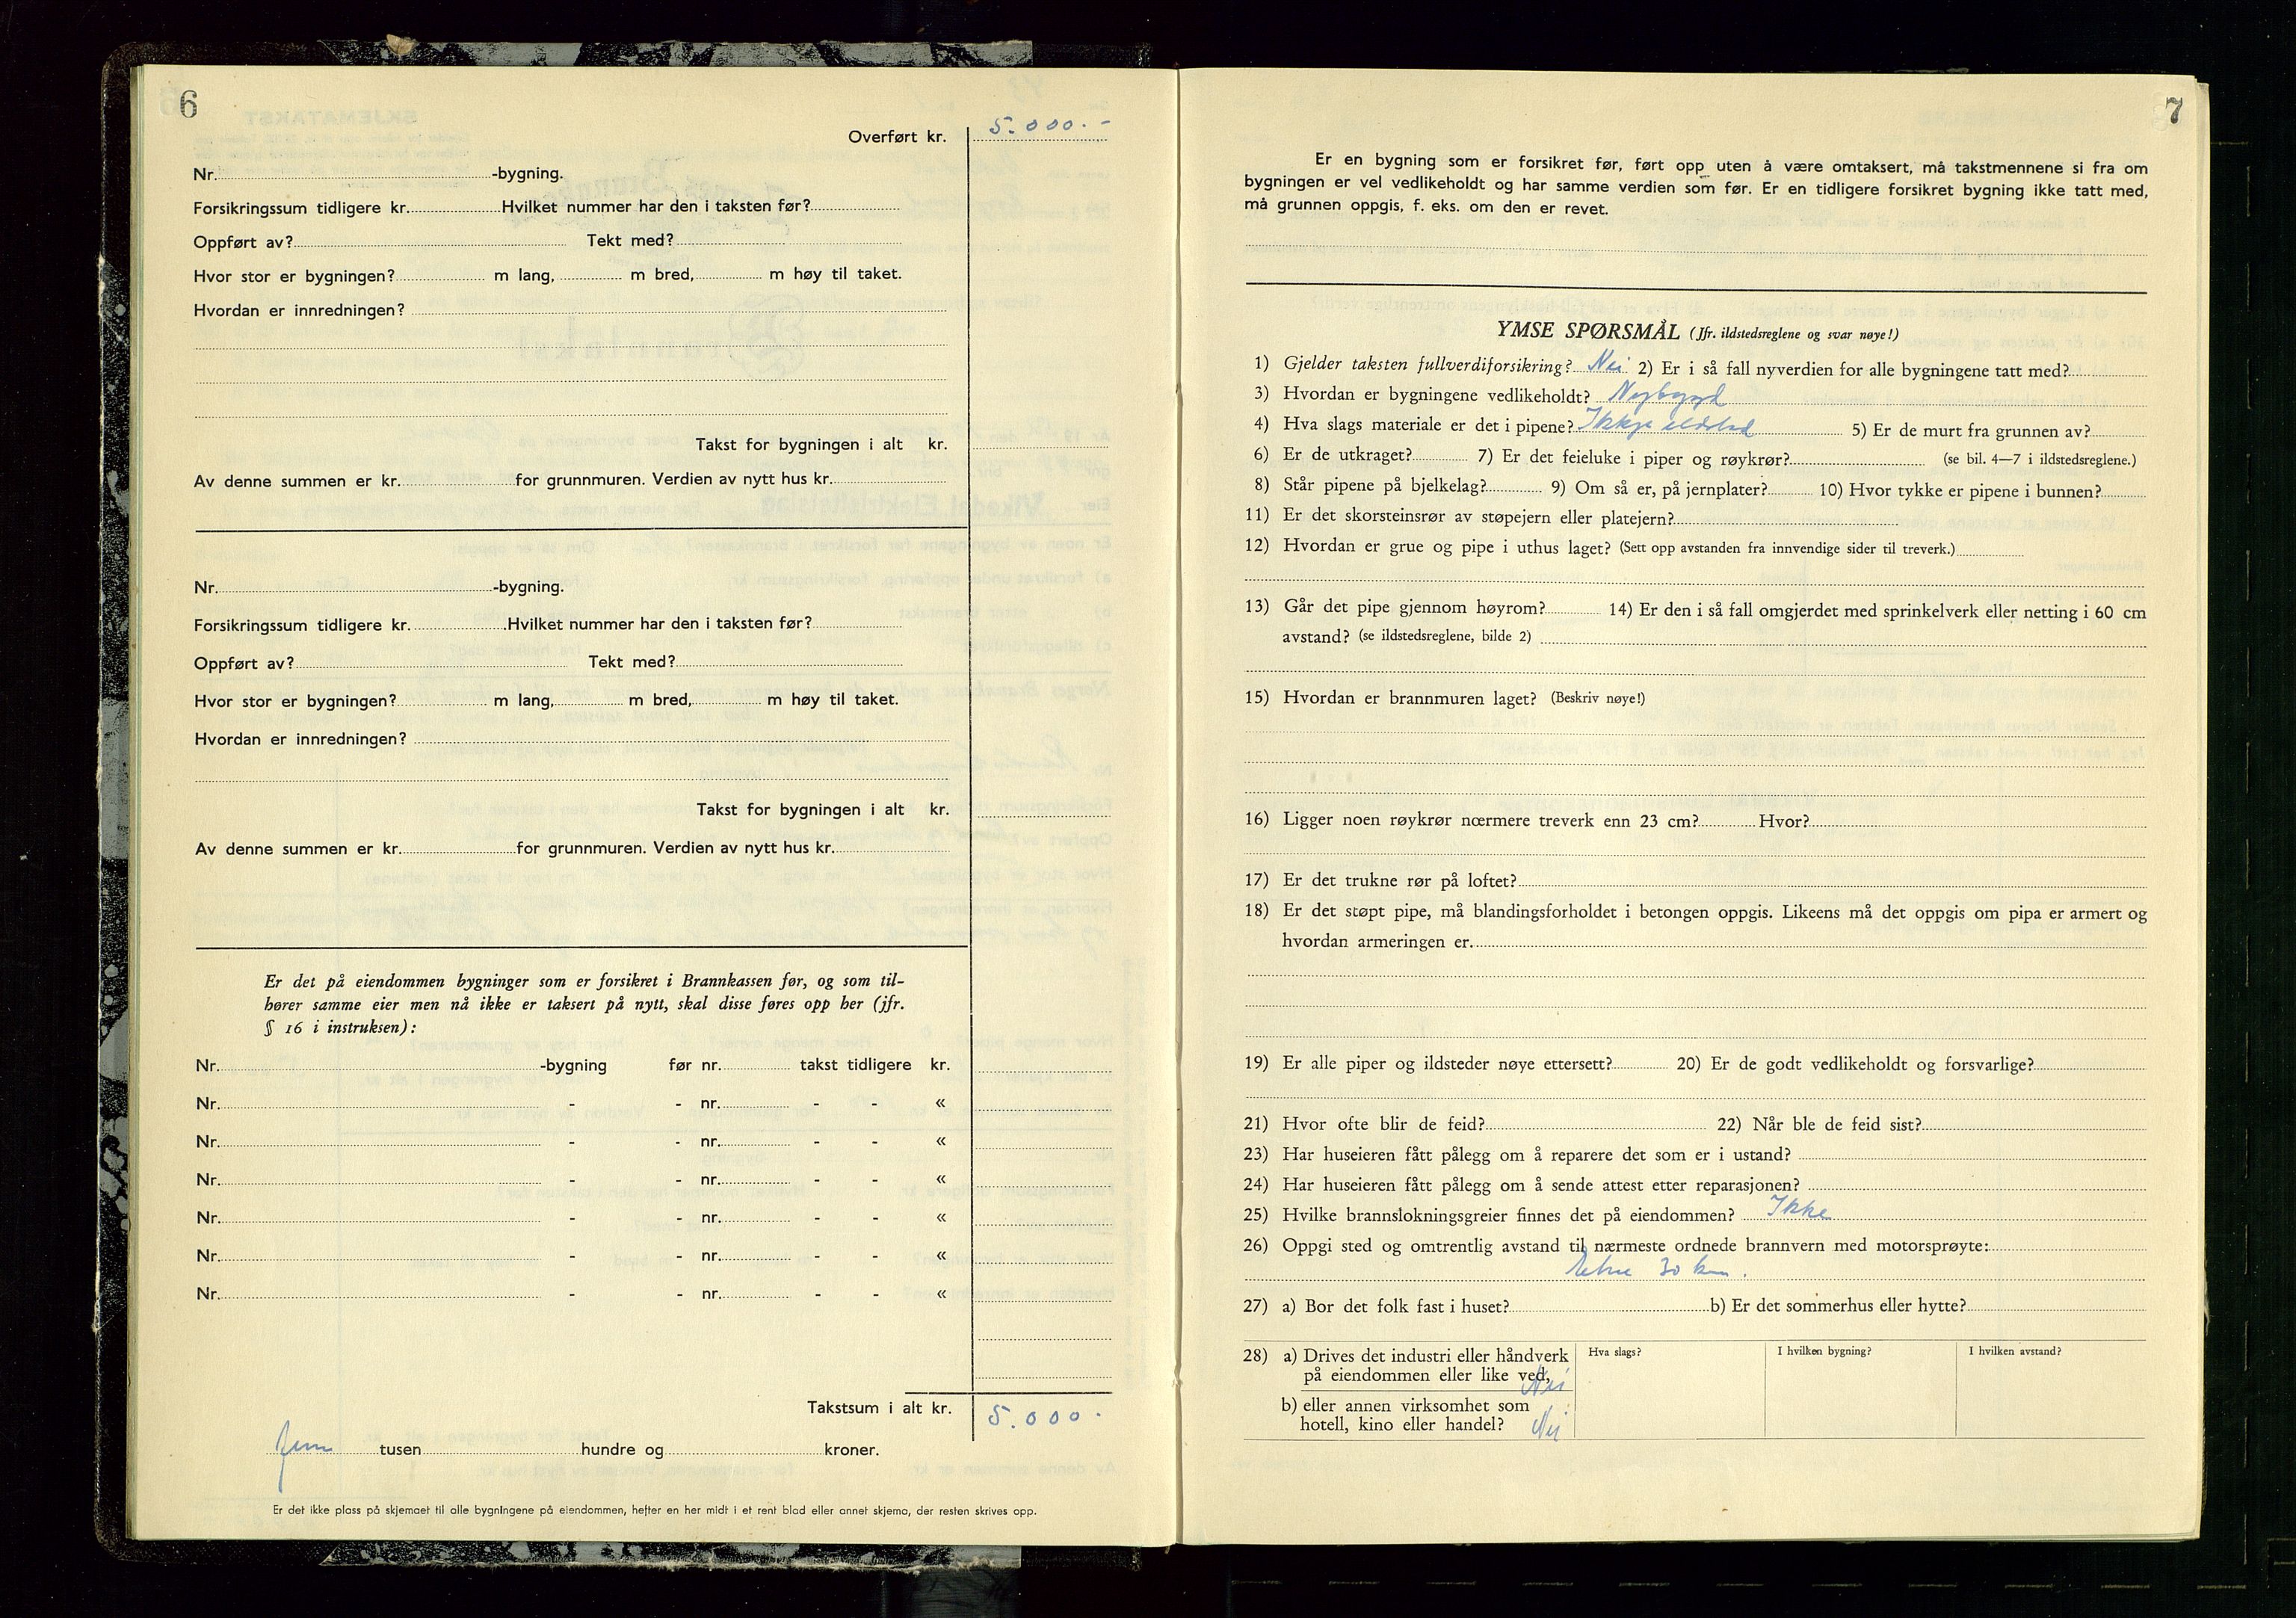 6
Overført kr. 5.000.-
Nr. -bygning.
Forsikringssum tidligere kr. Hvilket nummer har den i taksten før?
Oppført av? Tekt med?
Hvor stor er bygningen? m lang, m bred, m høy til taket.
Hvordan er innredningen?
Takst for bygningen i alt kr.
Av denne summen er kr. for grunnmuren. Verdien av nytt hus kr.
Nr. -bygning.
Forsikringssum tidligere kr. Hvilket nummer har den i taksten før?
Oppført av? Tekt med?
Hvor stor er bygningen? m lang, m bred, m høy til taket.
Hvordan er innredningen?
Takst for bygningen i alt kr.
Av denne summen er kr. for grunnmuren. Verdien av nytt hus kr.
Er det på eiendommen bygninger som er forsikret i Brannkassen før, og som til-
hører samme eier men nå ikke er taksert på nytt, skal disse føres opp her (jfr.
§ 16 i instruksen):
Nr. -bygning før nr. takst tidligere kr.
Nr. - - nr. - - «
Nr. - - nr. - - «
Nr. - - nr. - - «
Nr. - - nr. - - «
Nr. - - nr. - - «
Nr. - - nr. - - «
Takstsum i alt kr. 5.000.
fem tusen hundre og kroner.
Er det ikke plass på skjemaet til alle bygningene på eiendommen, hefter en her midt i et rent blad eller annet skjema, der resten skrives opp.
7
Er en bygning som er forsikret før, ført opp uten å være omtaksert, må takstmennene si fra om
bygningen er vel vedlikeholdt og har samme verdien som før. Er en tidligere forsikret bygning ikke tatt med,
må grunnen oppgis, f. eks. om den er revet.
YMSE SPØRSMÅL (Jfr. ildstedsreglene og svar nøye!)
1) Gjelder taksten fullverdiforsikring? Nei 2) Er i så fall nyverdien for alle bygningene tatt med?
3) Hvordan er bygningene vedlikeholdt? Nybygd
4) Hva slags materiale er det i pipene? Ikkje eldsted 5) Er de murt fra grunnen av?
6) Er de utkraget? 7) Er det feieluke i piper og røykrør? (se bil. 4—7 i ildstedsreglene.)
8) Står pipene på bjelkelag? 9) Om så er, på jernplater? 10) Hvor tykke er pipene i bunnen?
11) Er det skorsteinsrør av støpejern eller platejern?
12) Hvordan er grue og pipe i uthus laget? (Sett opp avstanden fra innvendige sider til treverk.)
13) Går det pipe gjennom høyrom? 14) Er den i så fall omgjerdet med sprinkelverk eller netting i 60 cm
avstand? (se ildstedsreglene, bilde 2)
15) Hvordan er brannmuren laget? (Beskriv nøye!)
16) Ligger noen røykrør nærmere treverk enn 23 cm? Hvor?
17) Er det trukne rør på loftet?
18) Er det støpt pipe, må blandingsforholdet i betongen oppgis. Likeens må det oppgis om pipa er armert og
hvordan armeringen er.
19) Er alle piper og ildsteder nøye ettersett? 20) Er de godt vedlikeholdt og forsvarlige?
21) Hvor ofte blir de feid? 22) Når ble de feid sist?
23) Har huseieren fått pålegg om å reparere det som er i ustand?
24) Har huseieren fått pålegg om å sende attest etter reparasjonen?
25) Hvilke brannslokningsgreier finnes det på eiendommen? Ikke
26) Oppgi sted og omtrentlig avstand til nærmeste ordnede brannvern med motorsprøyte:
Etne 30 km.
27) a) Bor det folk fast i huset? b) Er det sommerhus eller hytte?
28) a) Drives det industri eller håndverk Hva slags? I hvilken bygning? I hvilken avstand?
på eiendommen eller like ved, Nei
b) eller annen virksomhet som
hotell, kino eller handel? Nei